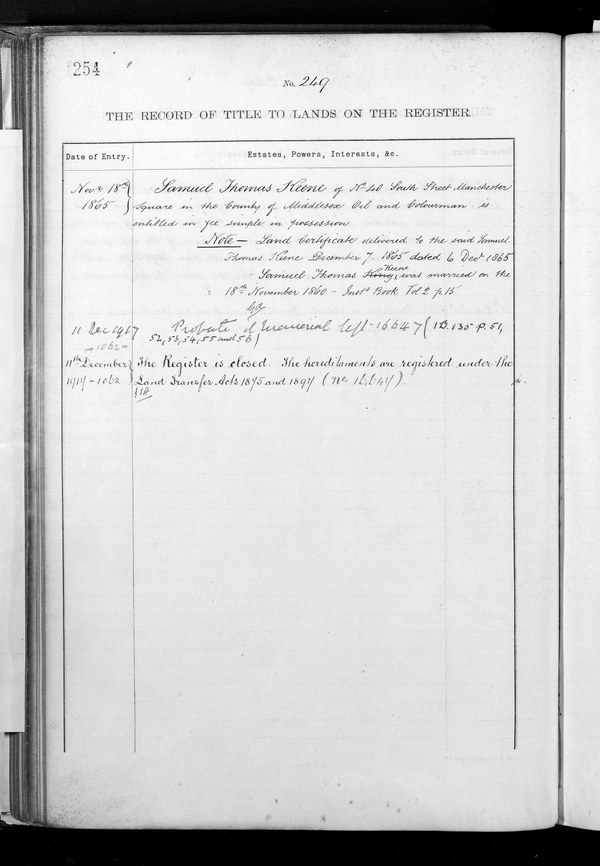 254
No. 249
THE RECORD OF TITLE TO LANDS ON THE REGISTER
Date of Entry.
Estates, Powers, Interests, &c.
Novr 18th
1865
Samuel Thomas Keene of No 40 South Street Manchester
Square in the County of Middlesex Oil and Colourman is
entitled in fee simple in possession
Note — Land Certificate delivered to the said Samuel
Thomas Keene December 7. 1865 dated 6 Decr 1865
Samuel Thomas King Keene was married on the
18th November 1860 - Inst. Book Vol 2 p. 15
11 Dec 1917
1062
Probate of memorial left - 16647 (1B. 135 P. 51,
52, 53, 54, 55 and 56)
11th December
1917 - 1062
The Register is closed. The hereditaments are registered under the
Land Transfer Acts 1875 and 1897 (No 16647)